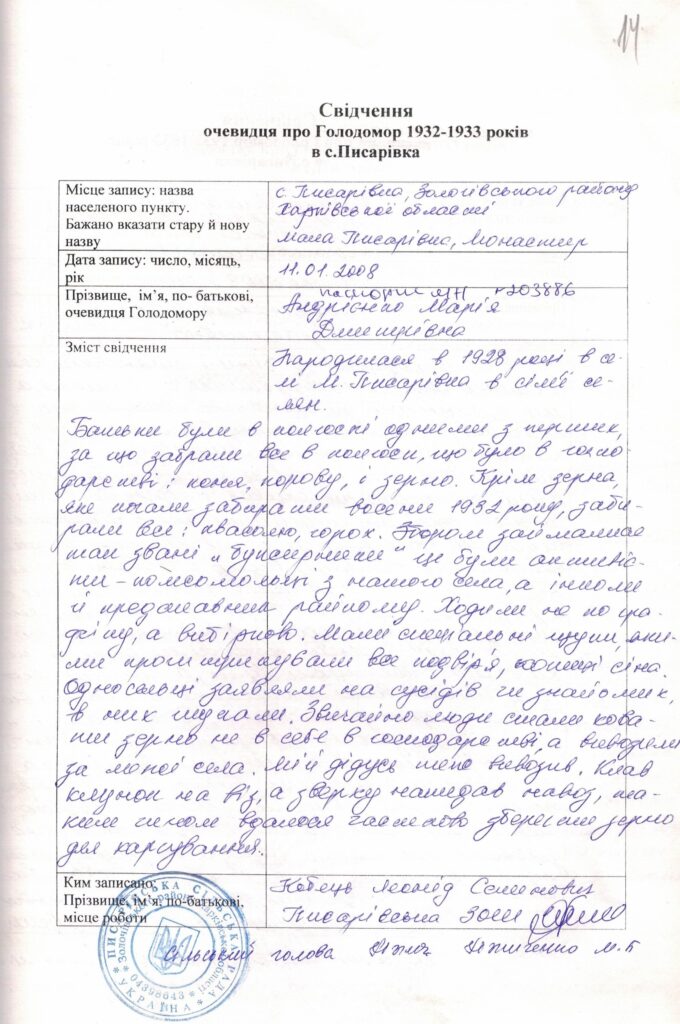 14
Свідчення
очевидця про Голодомор 1932-1933 років
в с.Писарівка
Місце запису: назва
населеного пункту.
Бажано вказати стару й нову
назву
с. Писарівка, Золочівського району
Харківської області
мала Писарівка, Монастир
Дата запису: число, місяць,
рік
11.01.2008
Прізвище, ім’я, по- батькові,
очевидця Голодомору
паспорт МН 203886
Андрієнко Марія
Дмитрівна
Зміст свідчення
Народилася в 1928 році в се-
лі М. Писарівка в сім'ї се-
лян.
Батьки були в колгоспі одними з перших,
за що забрали все в колгосп, що було в госпо-
дарстві: коня, корову, і зерно. Крім зерна,
яке почали забирати восени 1932 року, заби-
рали все: квасолю, горох. Збором займалися
так звані „буксирники“ це були активіс-
ти – комсомольці з нашого села, а інколи
й представник райкому. Ходили не по гра-
фіку, а вибірково. Мали спеціальні щупи, яки-
ми проштрикували все подвір'я, копиці сіна.
Односельці заявляли на сусідів чи знайомих,
в них шукали. Звичайно люди стали хова-
ти зерно не в себе в господарстві, а вивозили
за межі села. Мій дідусь теж вивозив. Клав
клунок на віз, а зверху накидав навоз, та-
ким чином вдалося частково зберегти зерно
для харчування.
Ким записано:
Прізвище, ім’я, по-батькові,
місце роботи
Кобець Леонід Семенович
Писарівська ЗОШ
Сільський голова М.Б
ПИСАРІВСЬКА СІЛЬСЬКА РАДА
Золочівського району Харківської області
* 04398643 *
* УКРАЇНА *